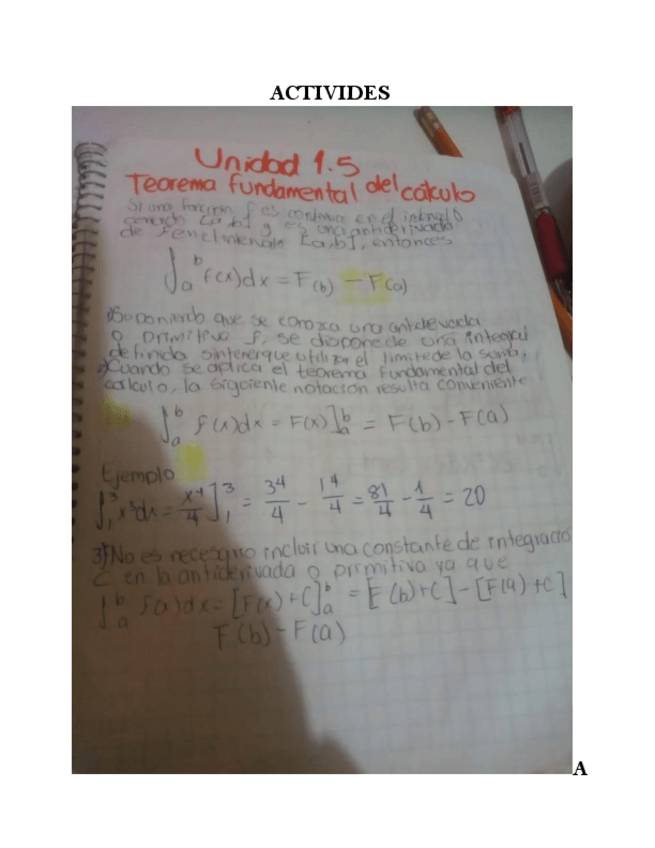 ACTIVIDES
Unidad 1.5
Teorema fundamental del cálculo
Si una función f es continua en el intervalo
cerrado [a,b] y es una antiderivada
de f en el intervalo [a,b], entonces
∫ₐᵇ f(x)dx = F(b) - F(a)
Suponiendo que se conozca una antiderivada
o primitiva f, se dispone de una integral
definida sin tener que utilizar el limite de la suma,
Cuando se aplica el teorema fundamental del
calculo, la siguiente notación resulta conveniente
∫ₐᵇ f(x)dx = F(x)]ₐᵇ = F(b) - F(a)
Ejemplo
∫₁³ x³dx = x⁴/4 ]₁³ = 3⁴/4 - 1⁴/4 = 81/4 - 1/4 = 20
3) No es necesario incluir una constante de integración
C en la antiderivada o primitiva ya que
∫ₐᵇ f(x)dx = [F(x) + C]ₐᵇ = [F(b) + C] - [F(a) + C]
F(b) - F(a)
A